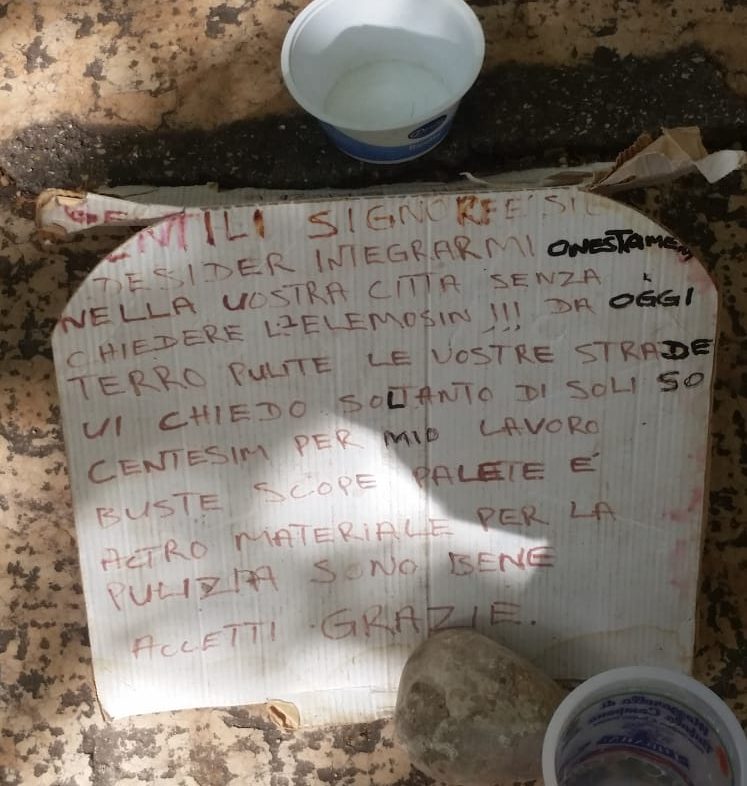 GENTILI SIGNORE E SI
DESIDER INTEGRARMI ONESTAMEN
NELLA VOSTRA CITTA SENZA
CHIEDERE L'ELEMOSIN !!! DA OGGI
TERRO PULITE LE VOSTRE STRADE
VI CHIEDO SOLTANTO DI SOLI 50
CENTESIM PER MIO LAVORO
BUSTE SCOPE PALETE E'
ALTRO MATERIALE PER LA
PULIZIA SONO BENE
ACCETTI GRAZIE.